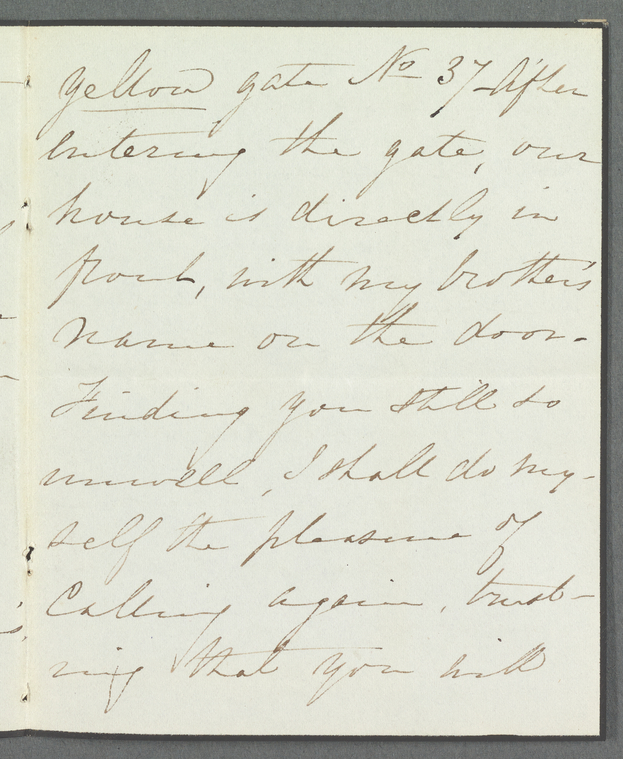 yellow gate No 37 - After
entering the gate, our
house is directly in
front, with my brother's
name on the door -
Finding you still so
unwell, I shall do my-
self the pleasure of
calling again, trust-
ing that you will